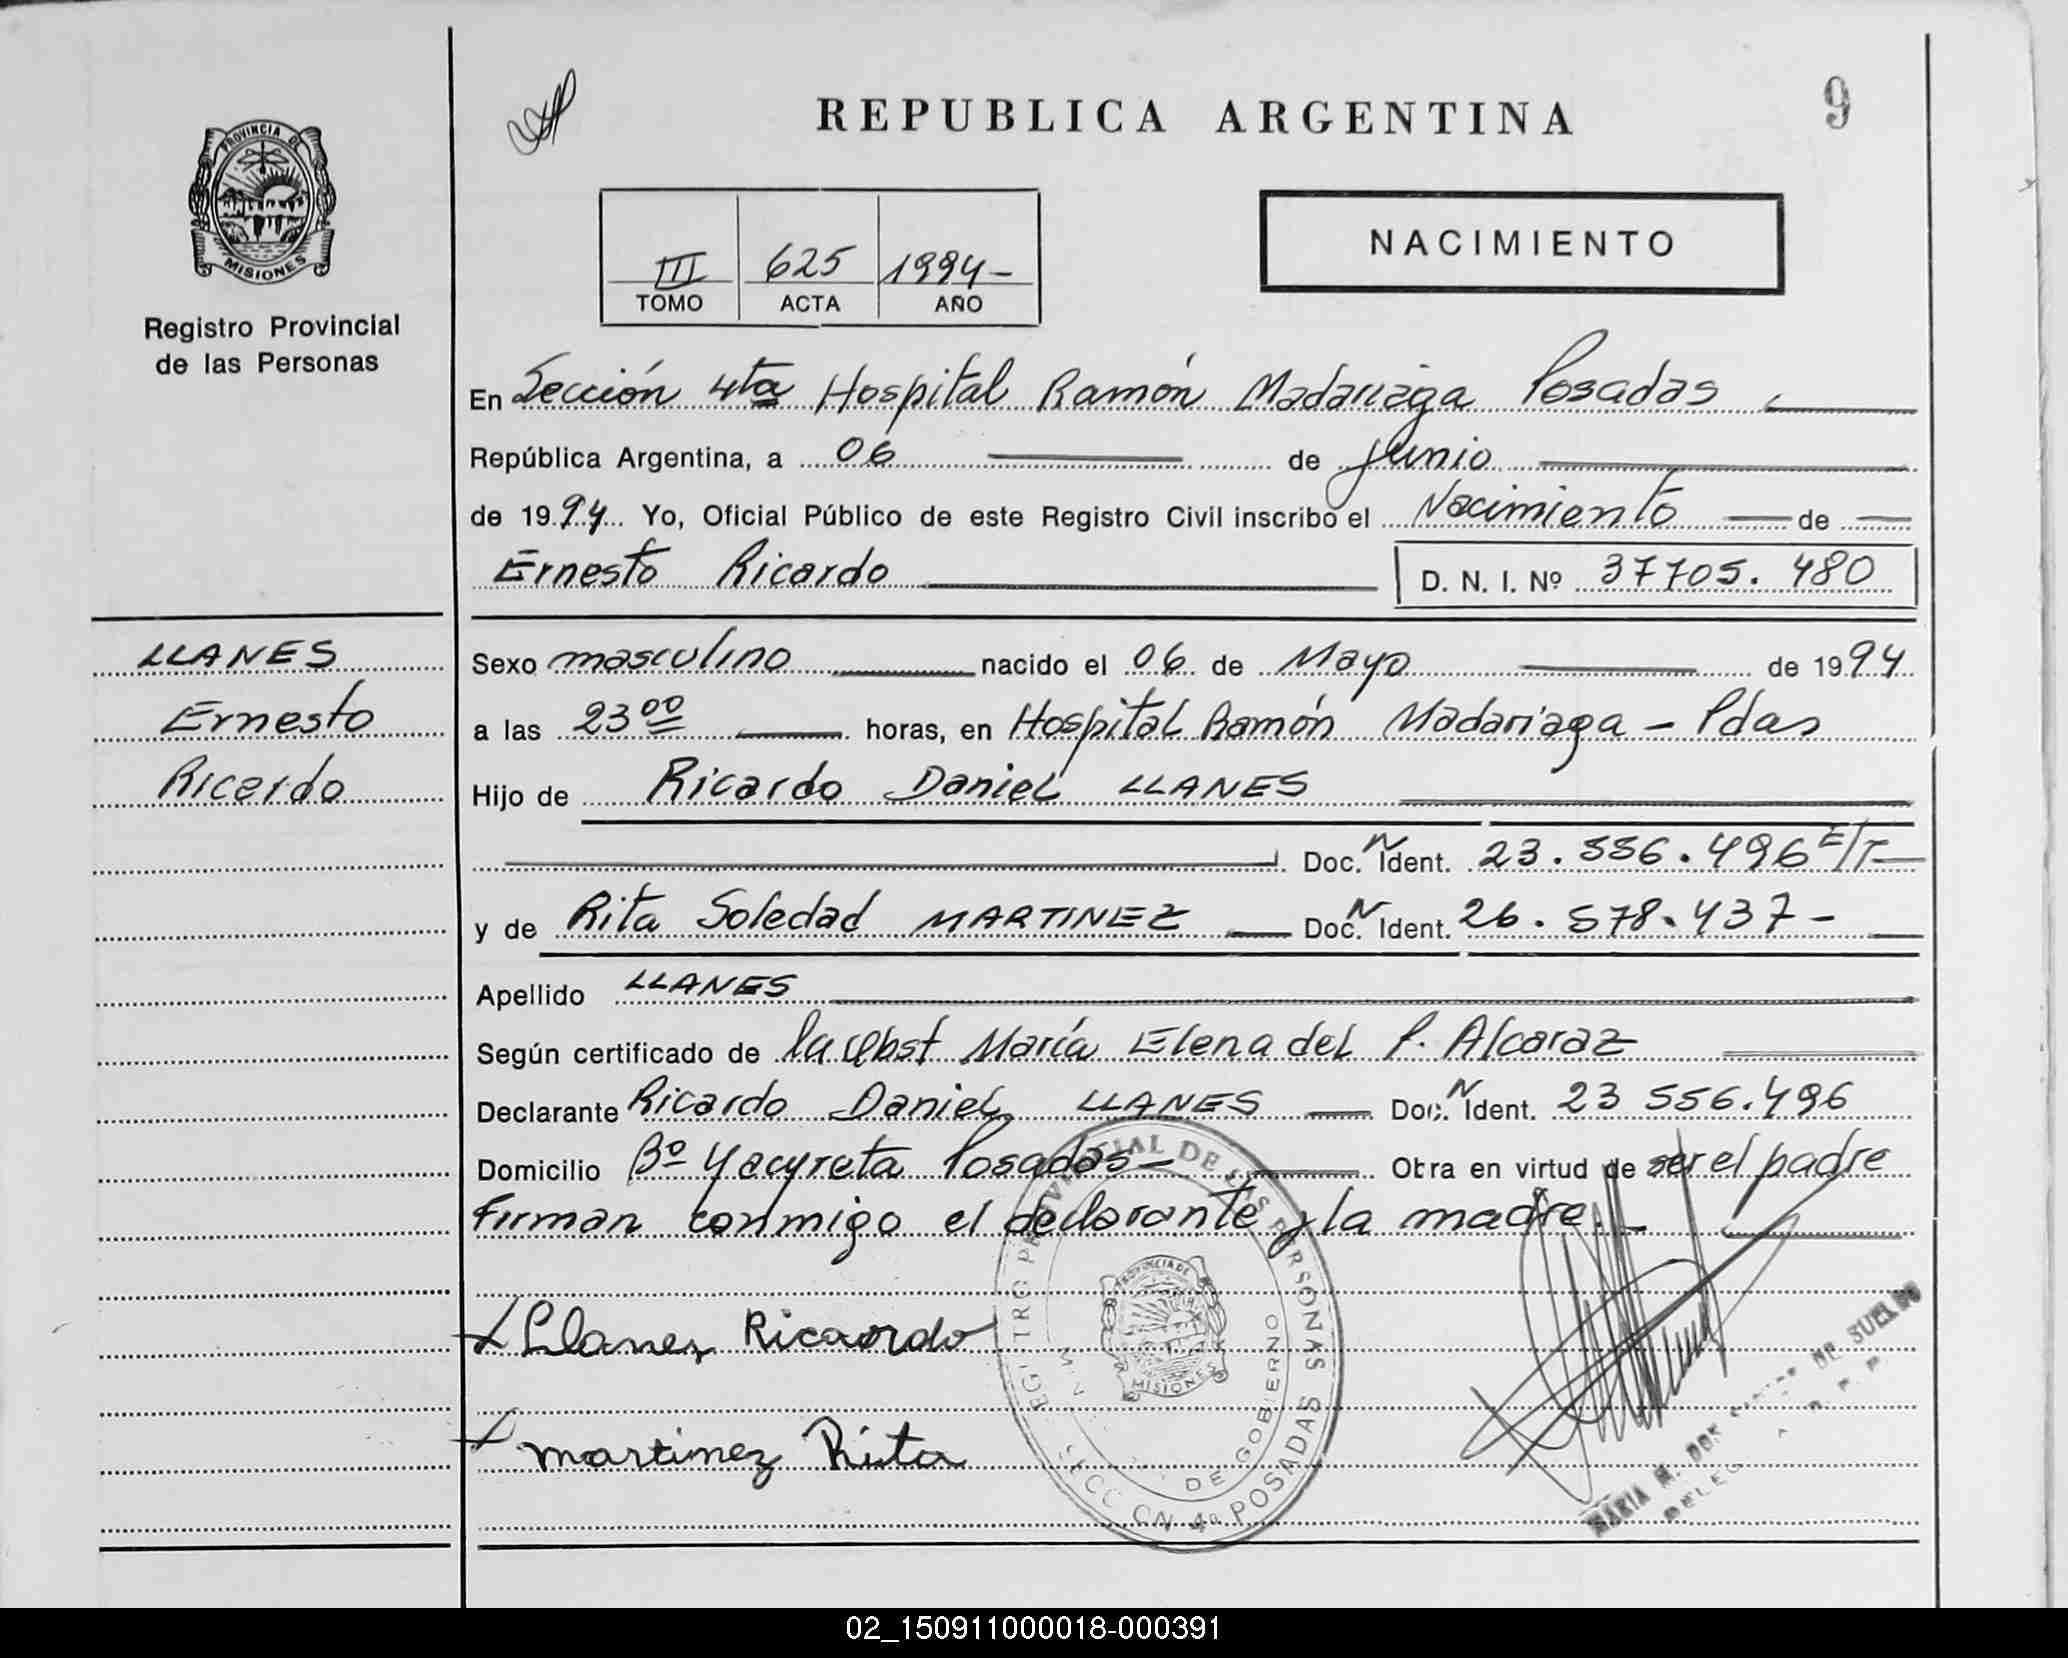 REPUBLICA ARGENTINA
9
PROVINCIA DE
MISIONES
Registro Provincial
de las Personas
III 625 1994-
TOMO ACTA AÑO
NACIMIENTO
En Sección 4ta Hospital Ramón Madariaga Posadas
República Argentina, a 06 de junio
de 1994 Yo, Oficial Público de este Registro Civil inscribo el Nacimiento de
Ernesto Ricardo D. N. I. Nº 37705.480
LLANES
Ernesto
Ricardo
Sexo masculino nacido el 06 de Mayo de 1994
a las 23 00 horas, en Hospital Ramón Madariaga - Pdas
Hijo de Ricardo Daniel LLANES
Doc. N Ident. 23.556.496 E/T
y de Rita Soledad MARTINEZ Doc. N Ident. 26.578.437-
Apellido LLANES
Según certificado de la Obst María Elena del P. Alcaraz
Declarante Ricardo Daniel LLANES Doc. N Ident. 23 556.496
Domicilio Bº Yacyreta Posadas- Obra en virtud de ser el padre
Firman conmigo el declarante y la madre.-
Llanes Ricardo
martinez Rita
REGISTRO PROVINCIAL DE LAS PERSONAS
PROVINCIA DE
MISIONES
DE GOBIERNO
SECCION 4a POSADAS
MARIA M. DOS DE SUELDO
02_150911000018-000391